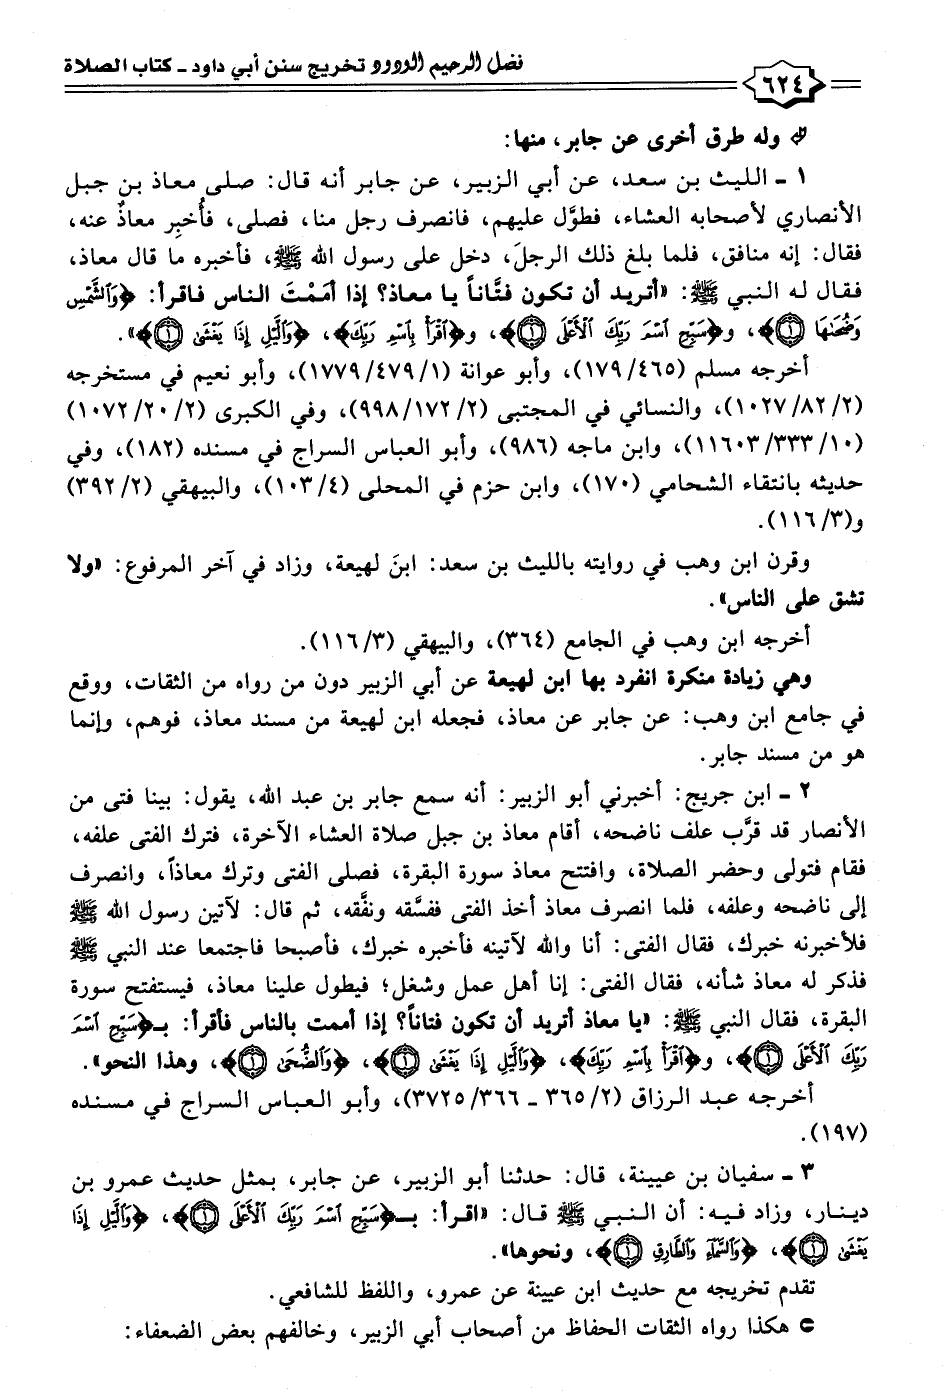 فضل الرحيم الودود تخريج سنن أبي داود - كتاب الصلاة
٦٢٤
وله طرق أخرى عن جابر، منها:
١ - الليث بن سعد، عن أبي الزبير، عن جابر أنه قال: صلى معاذ بن جبل
الأنصاري لأصحابه العشاء، فطوَّل عليهم، فانصرف رجل منا، فصلى، فأُخبِر معاذٌ عنه،
فقال: إنه منافق، فلما بلغ ذلك الرجلَ، دخل على رسول الله ﷺ، فأخبره ما قال معاذ،
فقال له النبي ﷺ: «أتريد أن تكون فتَّاناً يا معاذ؟ إذا أمَمْتَ الناس فاقرأ: ﴿وَٱلشَّمْسِ
وَضُحَىٰهَا ۝١﴾، و﴿سَبِّحِ ٱسْمَ رَبِّكَ ٱلْأَعْلَى ۝١﴾، و﴿ٱقْرَأْ بِٱسْمِ رَبِّكَ﴾، ﴿وَٱلَّيْلِ إِذَا يَغْشَىٰ ۝١﴾».
أخرجه مسلم (١٧٩/٤٦٥)، وأبو عوانة (١٧٧٩/٤٧٩/١)، وأبو نعيم في مستخرجه
(١٠٢٧/٨٢/٢)، والنسائي في المجتبى (٩٩٨/١٧٢/٢)، وفي الكبرى (١٠٧٢/٢٠/٢)
(١١٦٠٣/٣٣٣/١٠)، وابن ماجه (٩٨٦)، وأبو العباس السراج في مسنده (١٨٢)، وفي
حديثه بانتقاء الشحامي (١٧٠)، وابن حزم في المحلى (١٠٣/٤)، والبيهقي (٣٩٢/٢)
و(١١٦/٣).
وقرن ابن وهب في روايته بالليث بن سعد: ابنَ لهيعة، وزاد في آخر المرفوع: «ولا
تشق على الناس».
أخرجه ابن وهب في الجامع (٣٦٤)، والبيهقي (١١٦/٣).
وهي زيادة منكرة انفرد بها ابن لهيعة عن أبي الزبير دون من رواه من الثقات، ووقع
في جامع ابن وهب: عن جابر عن معاذ، فجعله ابن لهيعة من مسند معاذ، فوهم، وإنما
هو من مسند جابر.
٢ - ابن جريج: أخبرني أبو الزبير: أنه سمع جابر بن عبد الله، يقول: بينا فتى من
الأنصار قد قرَّب علف ناضحه، أقام معاذ بن جبل صلاة العشاء الآخرة، فترك الفتى علفه،
فقام فتولى وحضر الصلاة، وافتتح معاذ سورة البقرة، فصلى الفتى وترك معاذاً، وانصرف
إلى ناضحه وعلفه، فلما انصرف معاذ أخذ الفتى ففسَّقه ونفَّقه، ثم قال: لآتين رسول الله ﷺ
فلأخبرنه خبرك، فقال الفتى: أنا والله لآتينه فأخبره خبرك، فأصبحا فاجتمعا عند النبي ﷺ
فذكر له معاذ شأنه، فقال الفتى: إنا أهل عمل وشغل؛ فيطول علينا معاذ، فيستفتح سورة
البقرة، فقال النبي ﷺ: «يا معاذ أتريد أن تكون فتاناً؟ إذا أممت بالناس فأقرأ: بـ﴿سَبِّحِ ٱسْمَ
رَبِّكَ ٱلْأَعْلَى ۝١﴾، و﴿ٱقْرَأْ بِٱسْمِ رَبِّكَ﴾، ﴿وَٱلَّيْلِ إِذَا يَغْشَىٰ ۝١﴾، ﴿وَٱلضُّحَىٰ ۝١﴾، وهذا النحو».
أخرجه عبد الرزاق (٣٧٢٥/٣٦٦ - ٣٦٥/٢)، وأبو العباس السراج في مسنده
(١٩٧).
٣ - سفيان بن عيينة، قال: حدثنا أبو الزبير، عن جابر، بمثل حديث عمرو بن
دينار، وزاد فيه: أن النبي ﷺ قال: «اقرأ: بـ﴿سَبِّحِ ٱسْمَ رَبِّكَ ٱلْأَعْلَى ۝١﴾، ﴿وَٱلَّيْلِ إِذَا
يَغْشَىٰ ۝١﴾، ﴿وَٱلسَّمَآءِ وَٱلطَّارِقِ ۝١﴾، ونحوها».
تقدم تخريجه مع حديث ابن عيينة عن عمرو، واللفظ للشافعي.
هكذا رواه الثقات الحفاظ من أصحاب أبي الزبير، وخالفهم بعض الضعفاء: